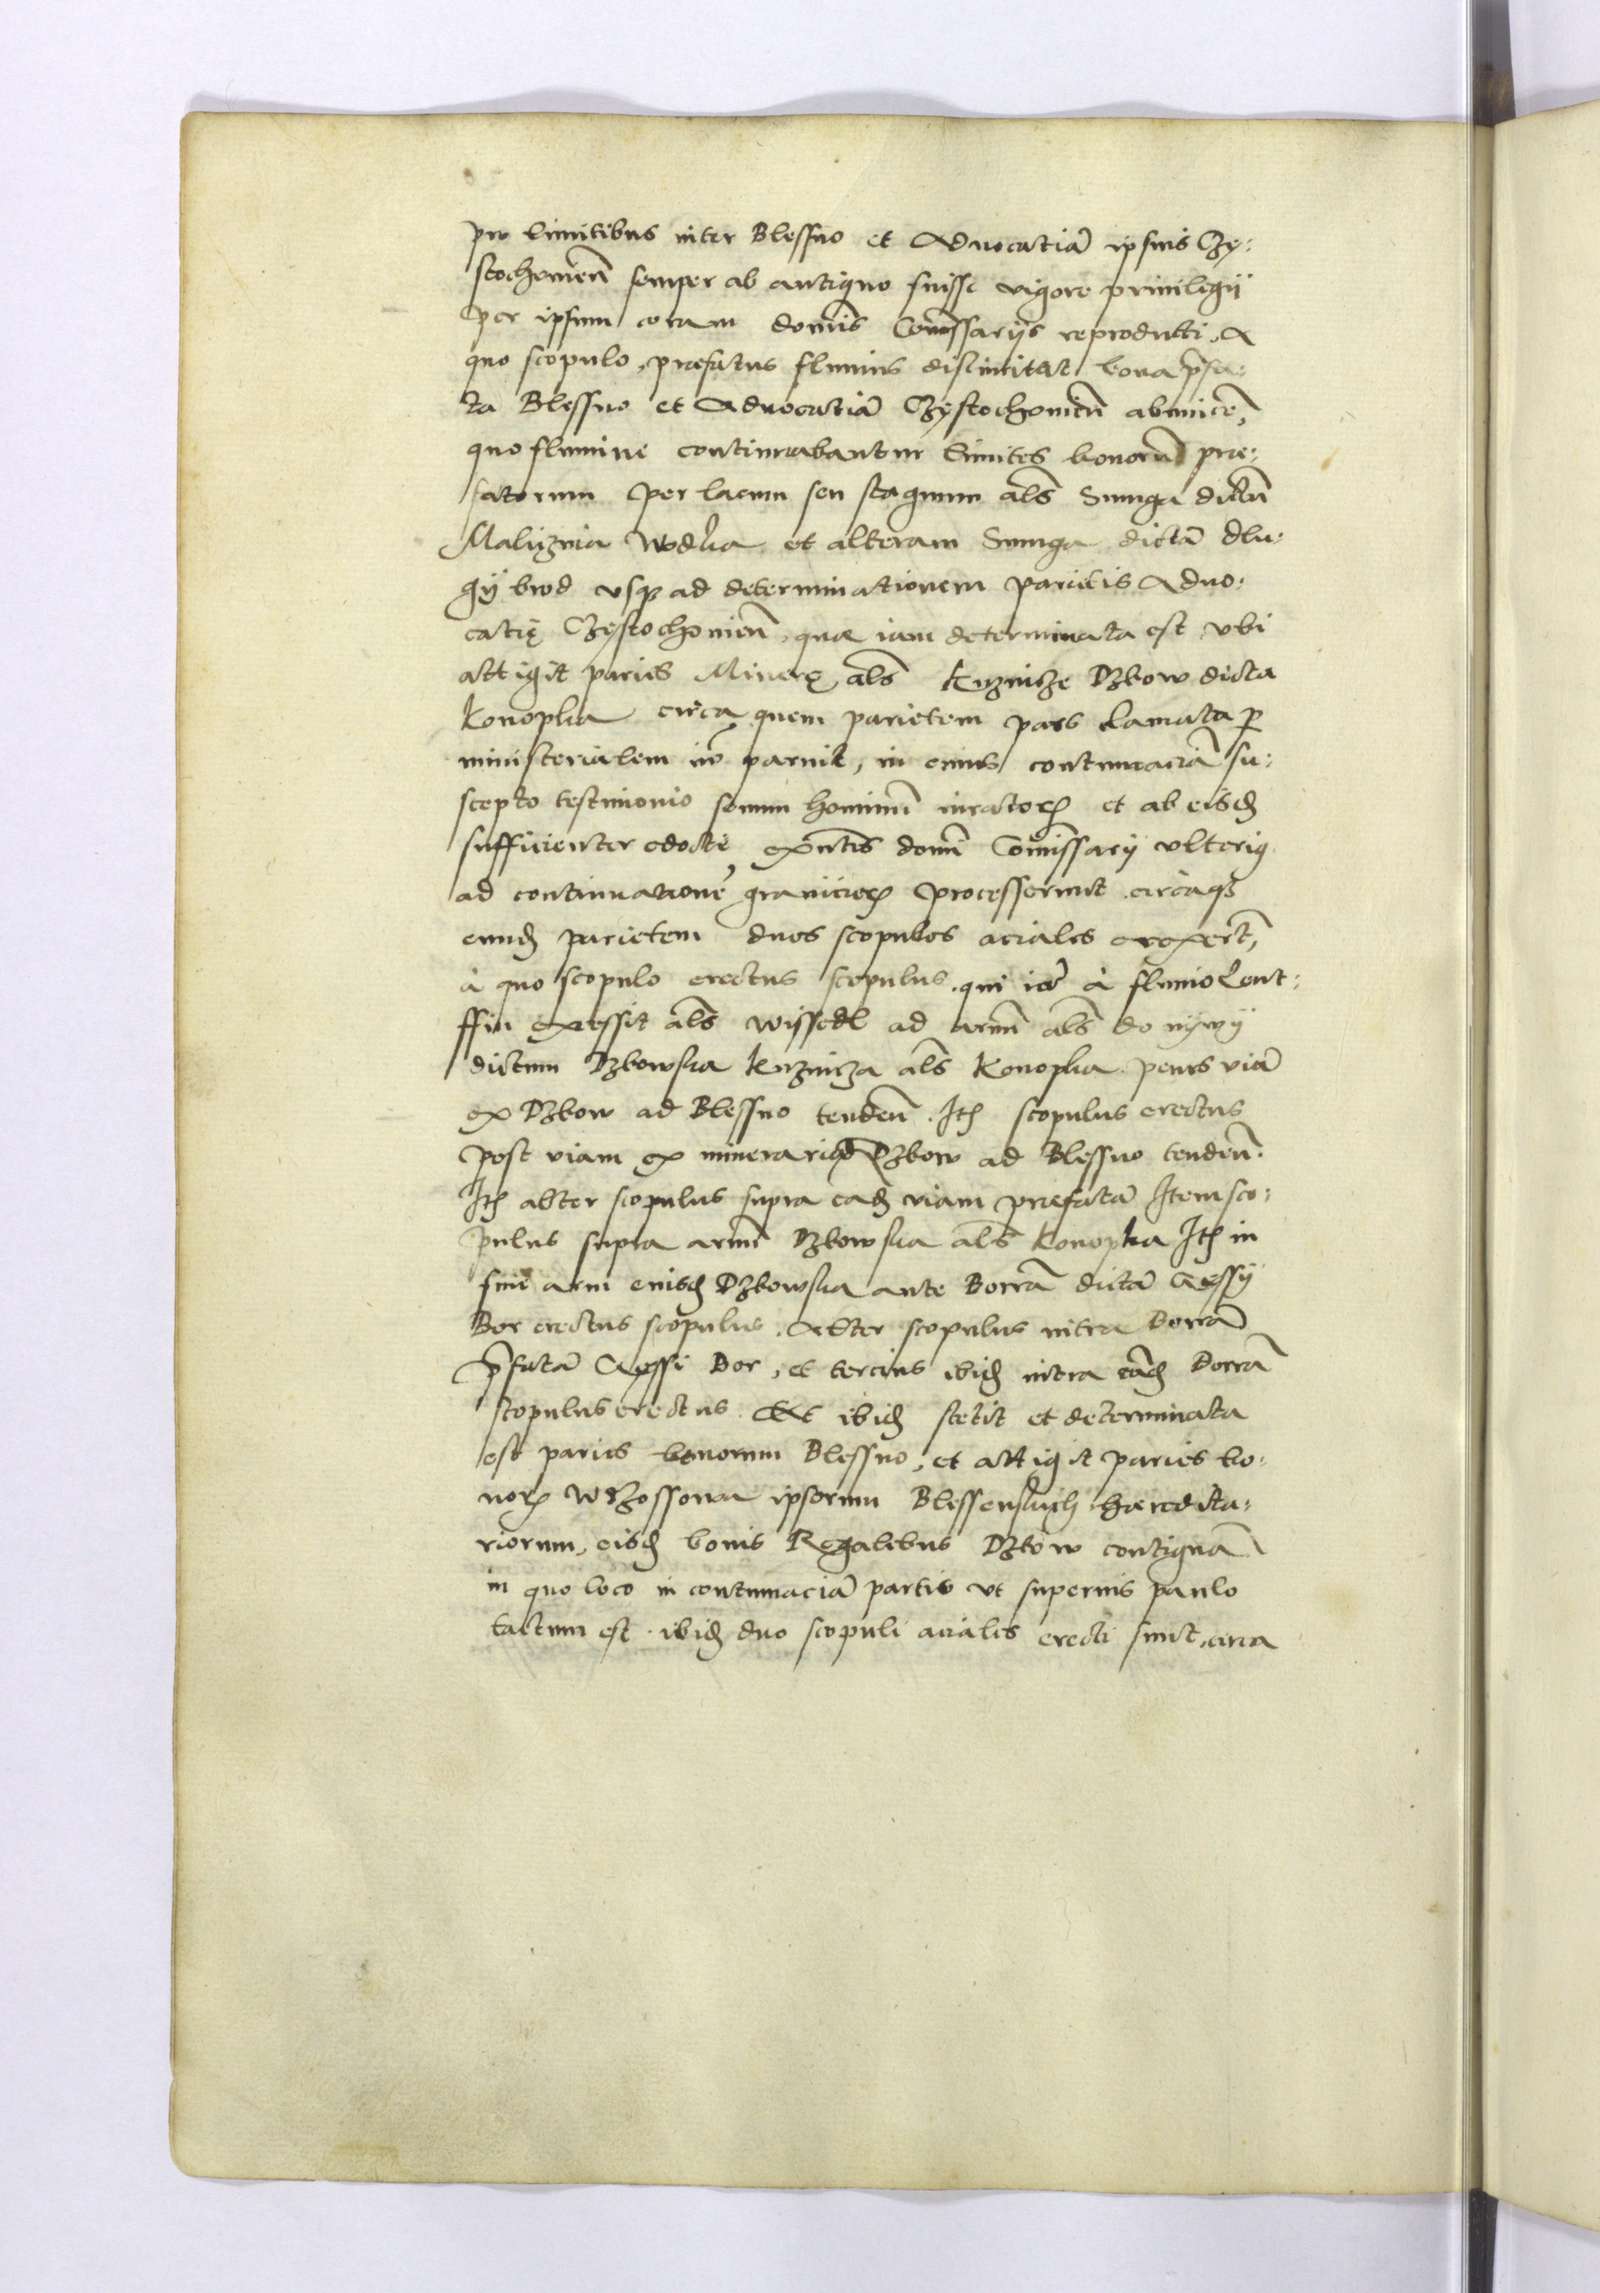 pro limitibus inter Blessno et Aduocatiā ipsius Czy:
stochouien̄ semper ab antiquo fuisse vigore priuilegij
per ipsum coram domīs Com̄issarijs reproducti, A
quo scopulo, praefatus fluuius distinctat bona p̄fa:
ta Blessno et Aduocatiā Czystochouien̄ abinuicē,
quo flumine continuabantur limites bonorū prae:
fatorum per lacum seu stagnum al̄s Smuga dictū
Maluznia Wodka et alteram Smuga dictā dlu:
gÿ brod vsq̨ ad determinationem parietis Aduo:
catię Czystochouien̄, quae iam determinata est vbi
attigit paries Minerę al̄s Kuznicze Dzbow dicta
Konopka circa quem parietem pars Zamata p̱
ministerialem nō paruit, in cuius contumaciā su:
scepto testimonio senum hominū iuratorꝝ et ab eisdē
sufficienter edocti exn̄tes domī Com̄issarij vlterius
ad continuationē granicierꝝ processerunt circaq̨
eundē parietem duos scopulos aciales erexer̄t,
à quo scopulo erectus scopulus, qui iā à fluuio Cont:
ffin exessit al̄s wissedl ad aruū al̄s do nÿwÿ
dictum Dzbowska Kuznicza al̄s Konopka penes viā
ex Dzbow ad Blessno tenden̄. Itē scopulus erectus
post viam ex mineraria Dzbow ad Blessno tenden̄.
Itē alter scopulus supra eādē viam praefatā Item sco:
pulus supra aruū Dzbowska al̄s Konopka Itē in
fine arui eiusdē Dzbowska ante Borrā dictā Gessÿ
Bor erectus scopulus. Alter scopulus intra Borrā
p̄fatā Gessi Bor, et tercius ibidē intra eādē Borrā
scopulus erectus Et ibidē stetit et determinata
est paries bonorum Blessno, et attigit paries bo:
norꝝ Wrzossowa ipsorum Blessenskich haeredita:
riorum, eisdē bonis Regalibus Dzbow contiguā
in quo loco in contumaciā partis vt superius paulo
tactum est ibidē duo scopuli aciales erecti sunt, circa